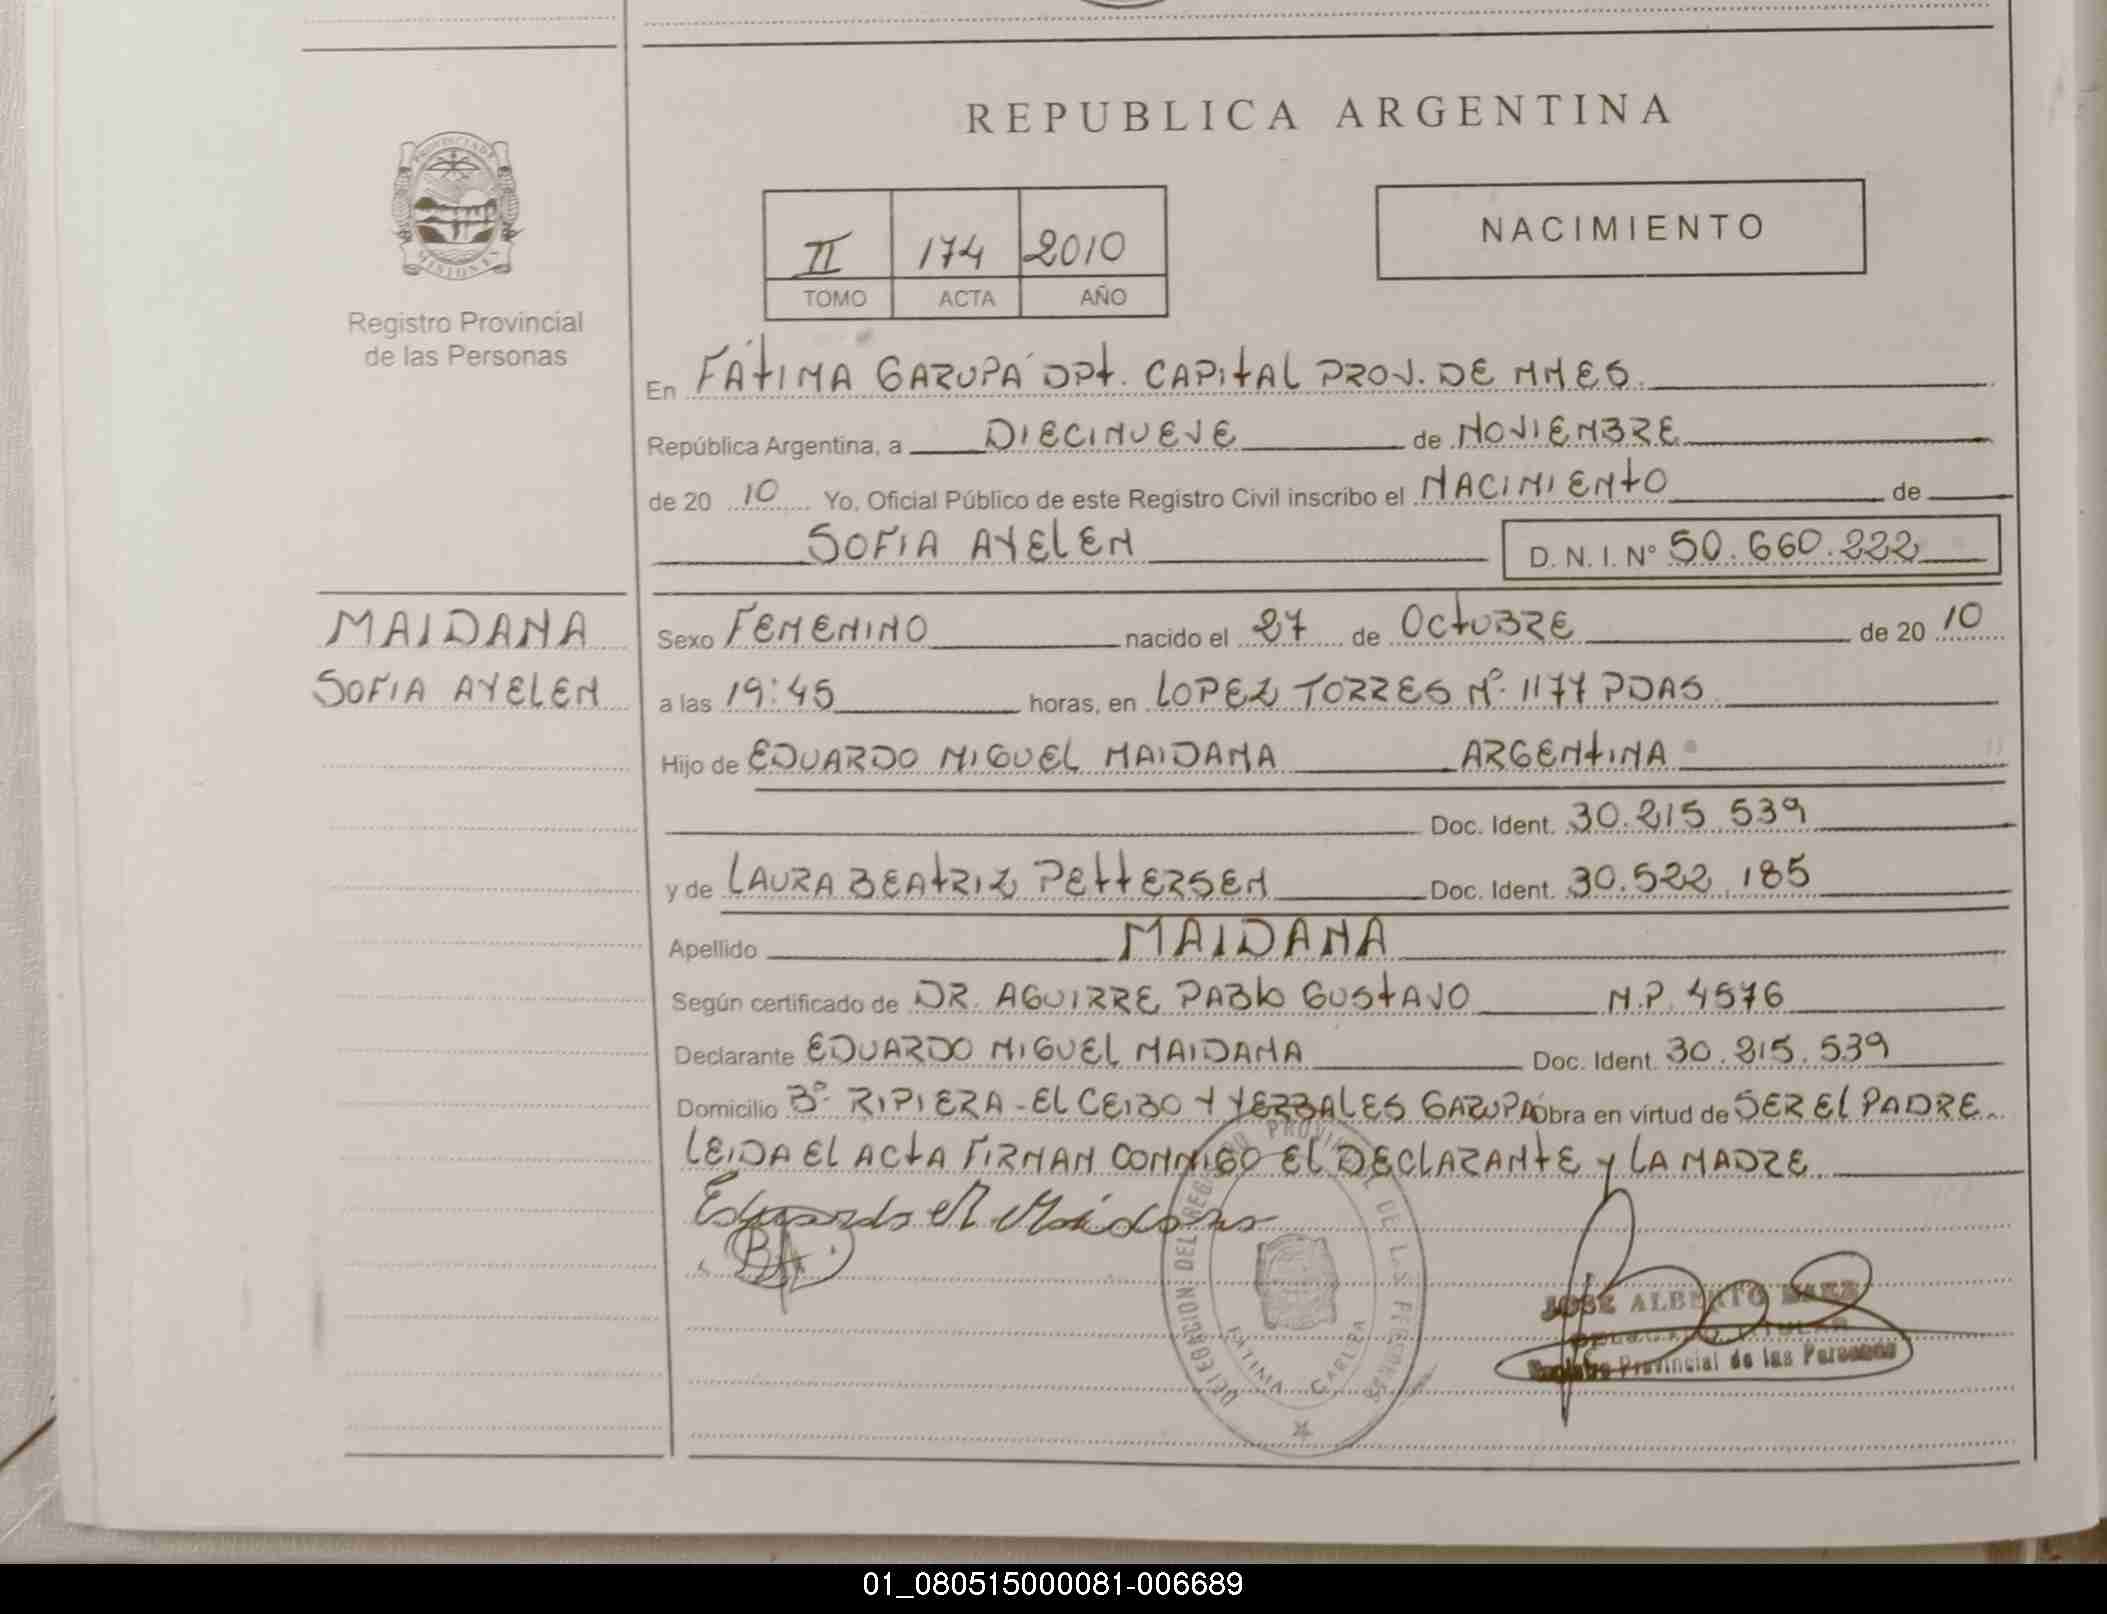 REPUBLICA ARGENTINA
PROVINCIA DE
MISIONES
Registro Provincial
de las Personas
II 174 2010
TOMO ACTA AÑO
NACIMIENTO
En FÁTIMA GARUPÁ DPt. CAPITAL PROV. DE MNES.
República Argentina, a DIECINUEVE de NOVIEMBRE
de 20 10 Yo, Oficial Público de este Registro Civil inscribo el NACIMIENTO de
SOFIA AYELEN D. N. I. N° 50.660.222
MAIDANA
SOFIA AYELEN
Sexo FEMENINO nacido el 27 de OCTUBRE de 20 10
a las 19:45 horas, en LOPEZ TORRES Nº 1177 PDAS
Hijo de EDUARDO MIGUEL MAIDANA ARGENTINA
Doc. Ident. 30.215.539
y de LAURA BEATRIZ PETTERSEN Doc. Ident. 30.522.185
Apellido MAIDANA
Según certificado de DR. AGUIRRE PABLO GUSTAVO M.P. 4576
Declarante EDUARDO MIGUEL MAIDANA Doc. Ident. 30.215.539
Domicilio Bº RIPIERA - EL CEIBO Y YERBALES GARUPÁ Obra en virtud de SER EL PADRE
LEIDA EL ACTA FIRMAN CONMIGO EL DECLARANTE Y LA MADRE
Eduardo M Maidana
DELEGACION DEL REGISTRO PROVINCIAL DE LAS PERSONAS
FATIMA GARUPA
JOSE ALBERTO BAEZ
DELEGADO TITULAR
Registro Provincial de las Personas
01_080515000081-006689